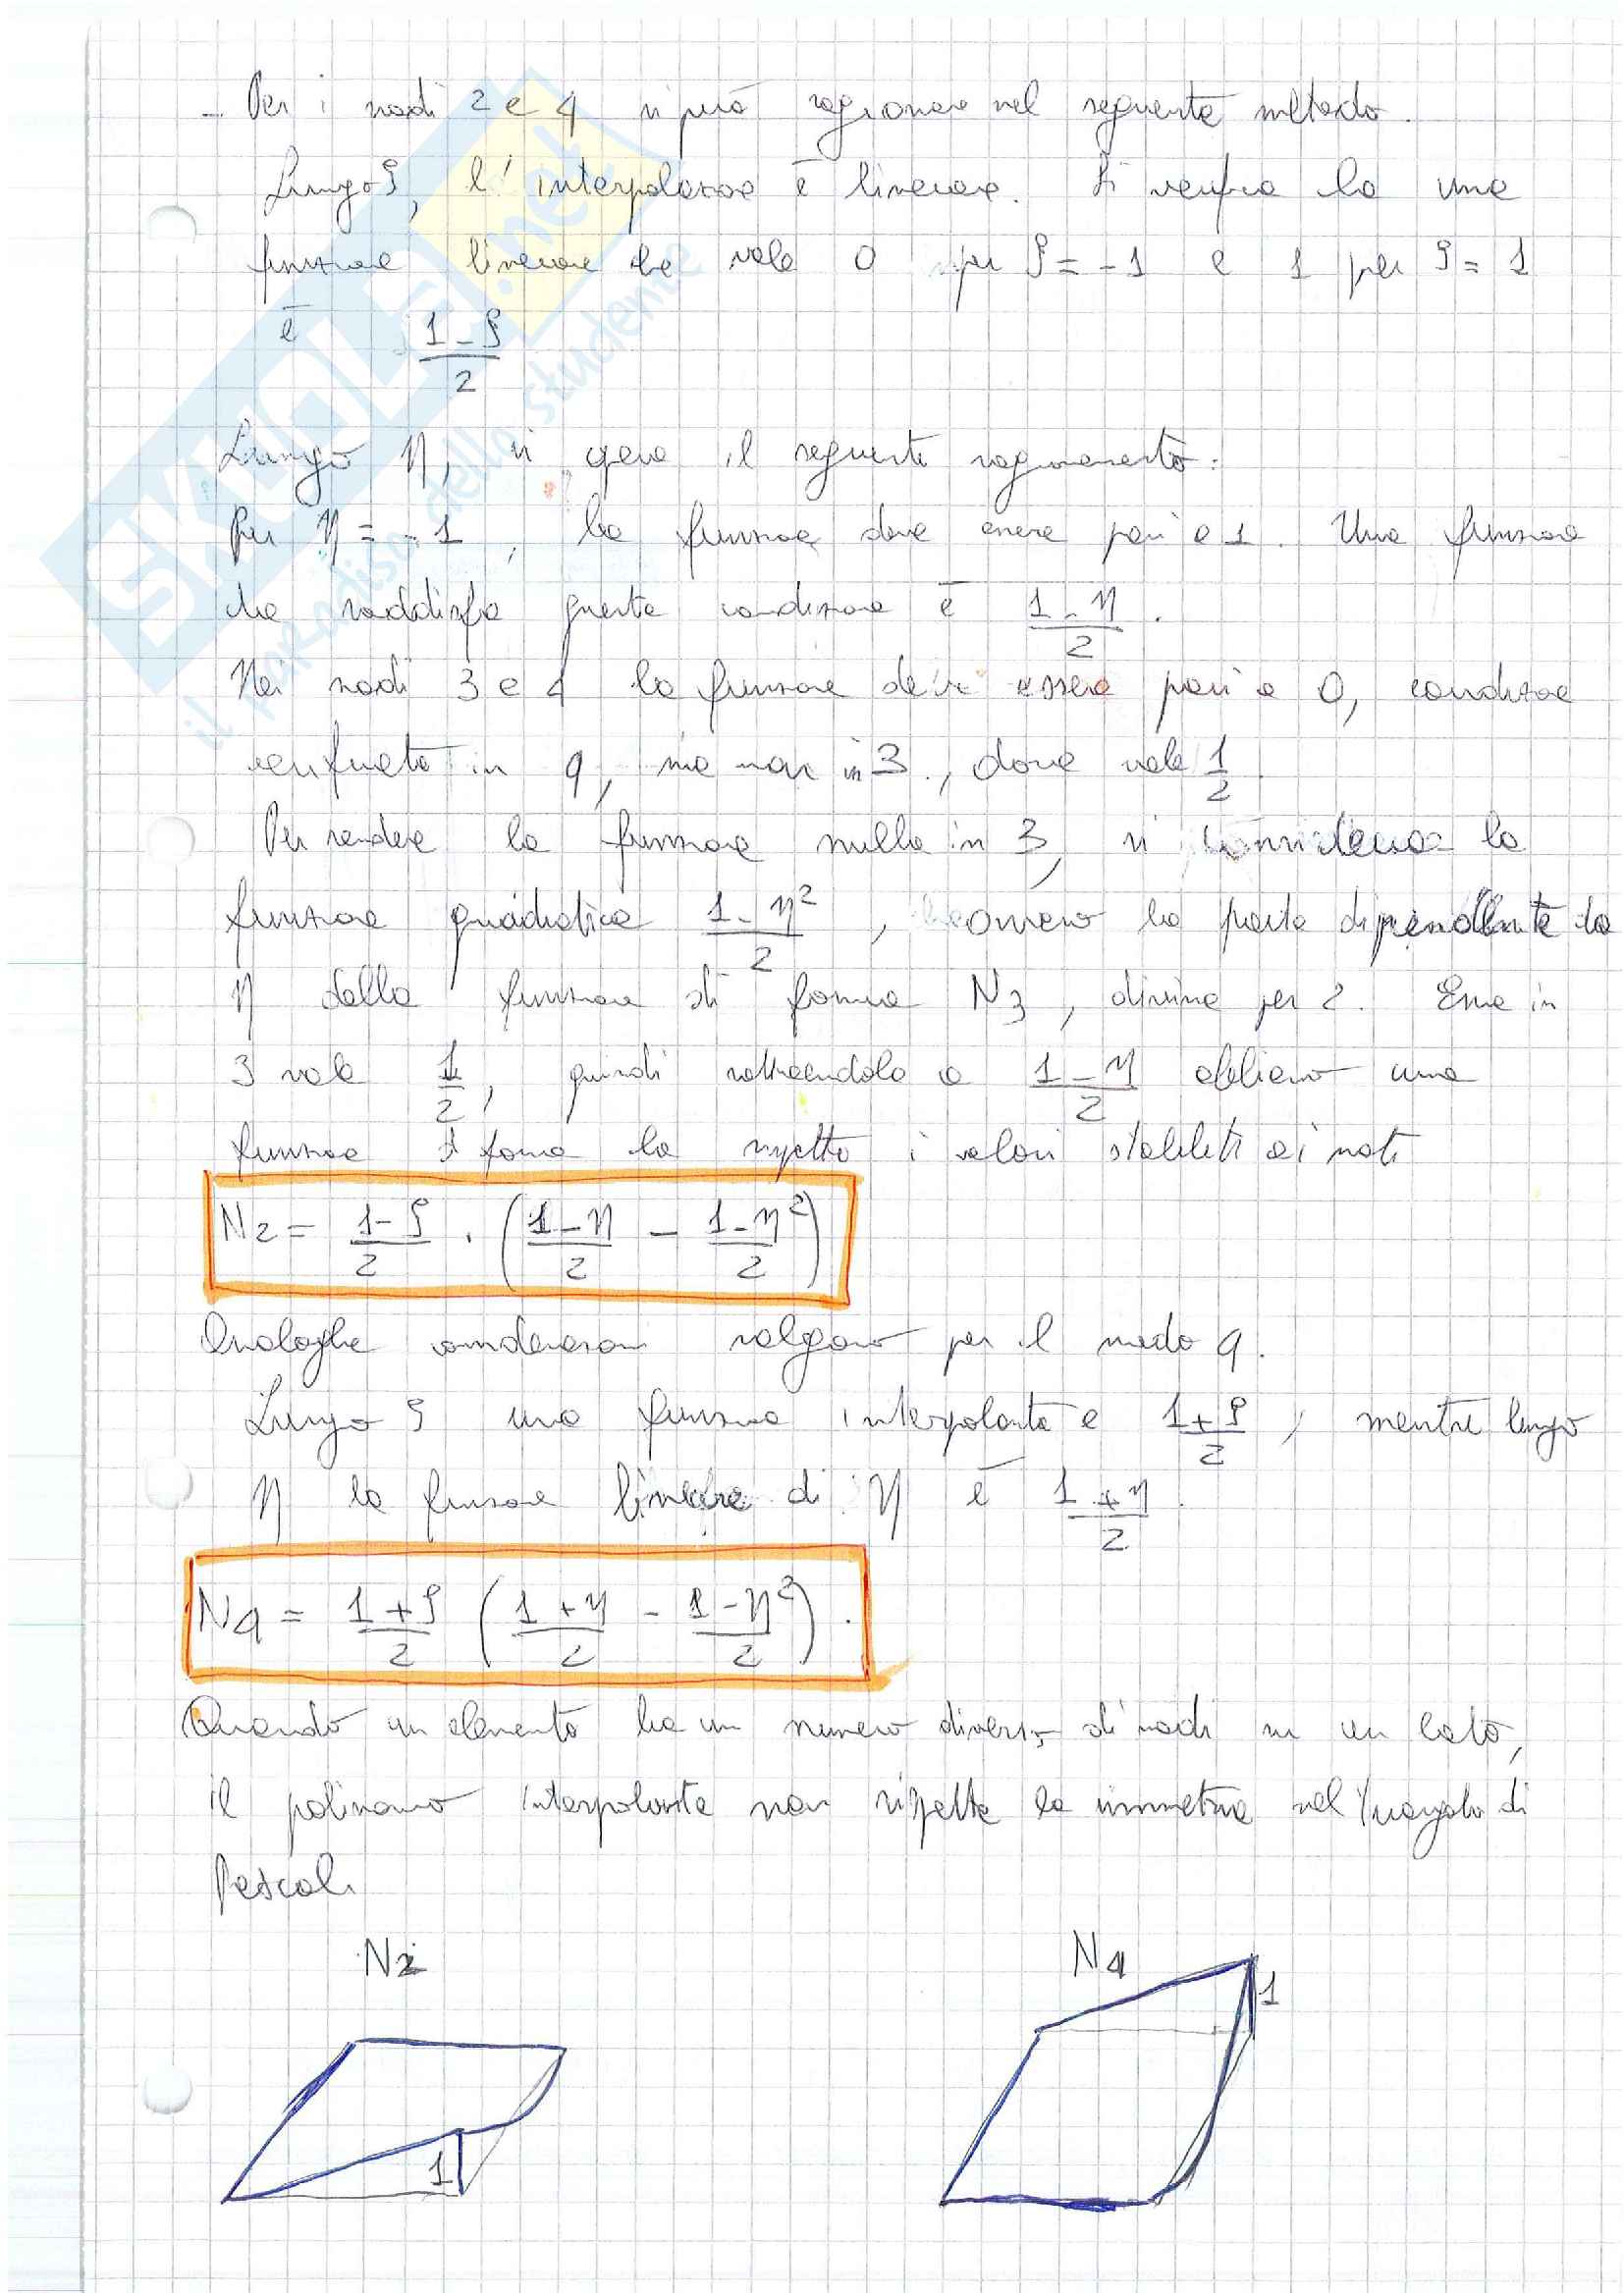 - Per i nodi 2 e 4 si può ragionare nel seguente metodo.
Lungo ξ, l'interpolazione è lineare. Si verifica che una
funzione lineare che vale 0 per ξ = -1 e 1 per ξ = 1
è (1-ξ)/2
Lungo η, si opera il seguente ragionamento:
Per η = -1, la funzione deve essere pari a 1. Una funzione
che soddisfa questa condizione è (1-η)/2.
Nei nodi 3 e 4 la funzione deve essere pari a 0, condizione
verificata in 4, ma non in 3, dove vale 1/2
Per rendere la funzione nulla in 3, si considera la
funzione quadratica (1-η²)/2, ovvero la parte dipendente da
η della funzione di forma N3, divisa per 2. Essa in
3 vale 1/2, quindi sottraendola a (1-η)/2 abbiamo una
funzione di forma che rispetta i valori stabiliti ai nodi
N2 = (1-ξ)/2 · ((1-η)/2 - (1-η²)/2)
Analoghe considerazioni valgono per il nodo 4.
Lungo ξ una funzione interpolante è (1+ξ)/2, mentre lungo
η la funzione lineare di η è (1+η)/2.
N4 = (1+ξ)/2 ((1+η)/2 - (1-η²)/2).
Quando un elemento ha un numero diverso di nodi su un lato,
il polinomio interpolante non rispetta la simmetria nel triangolo di
Pascal.
N2
N4
1
1
SKUOLA.net
il paradiso dello studente